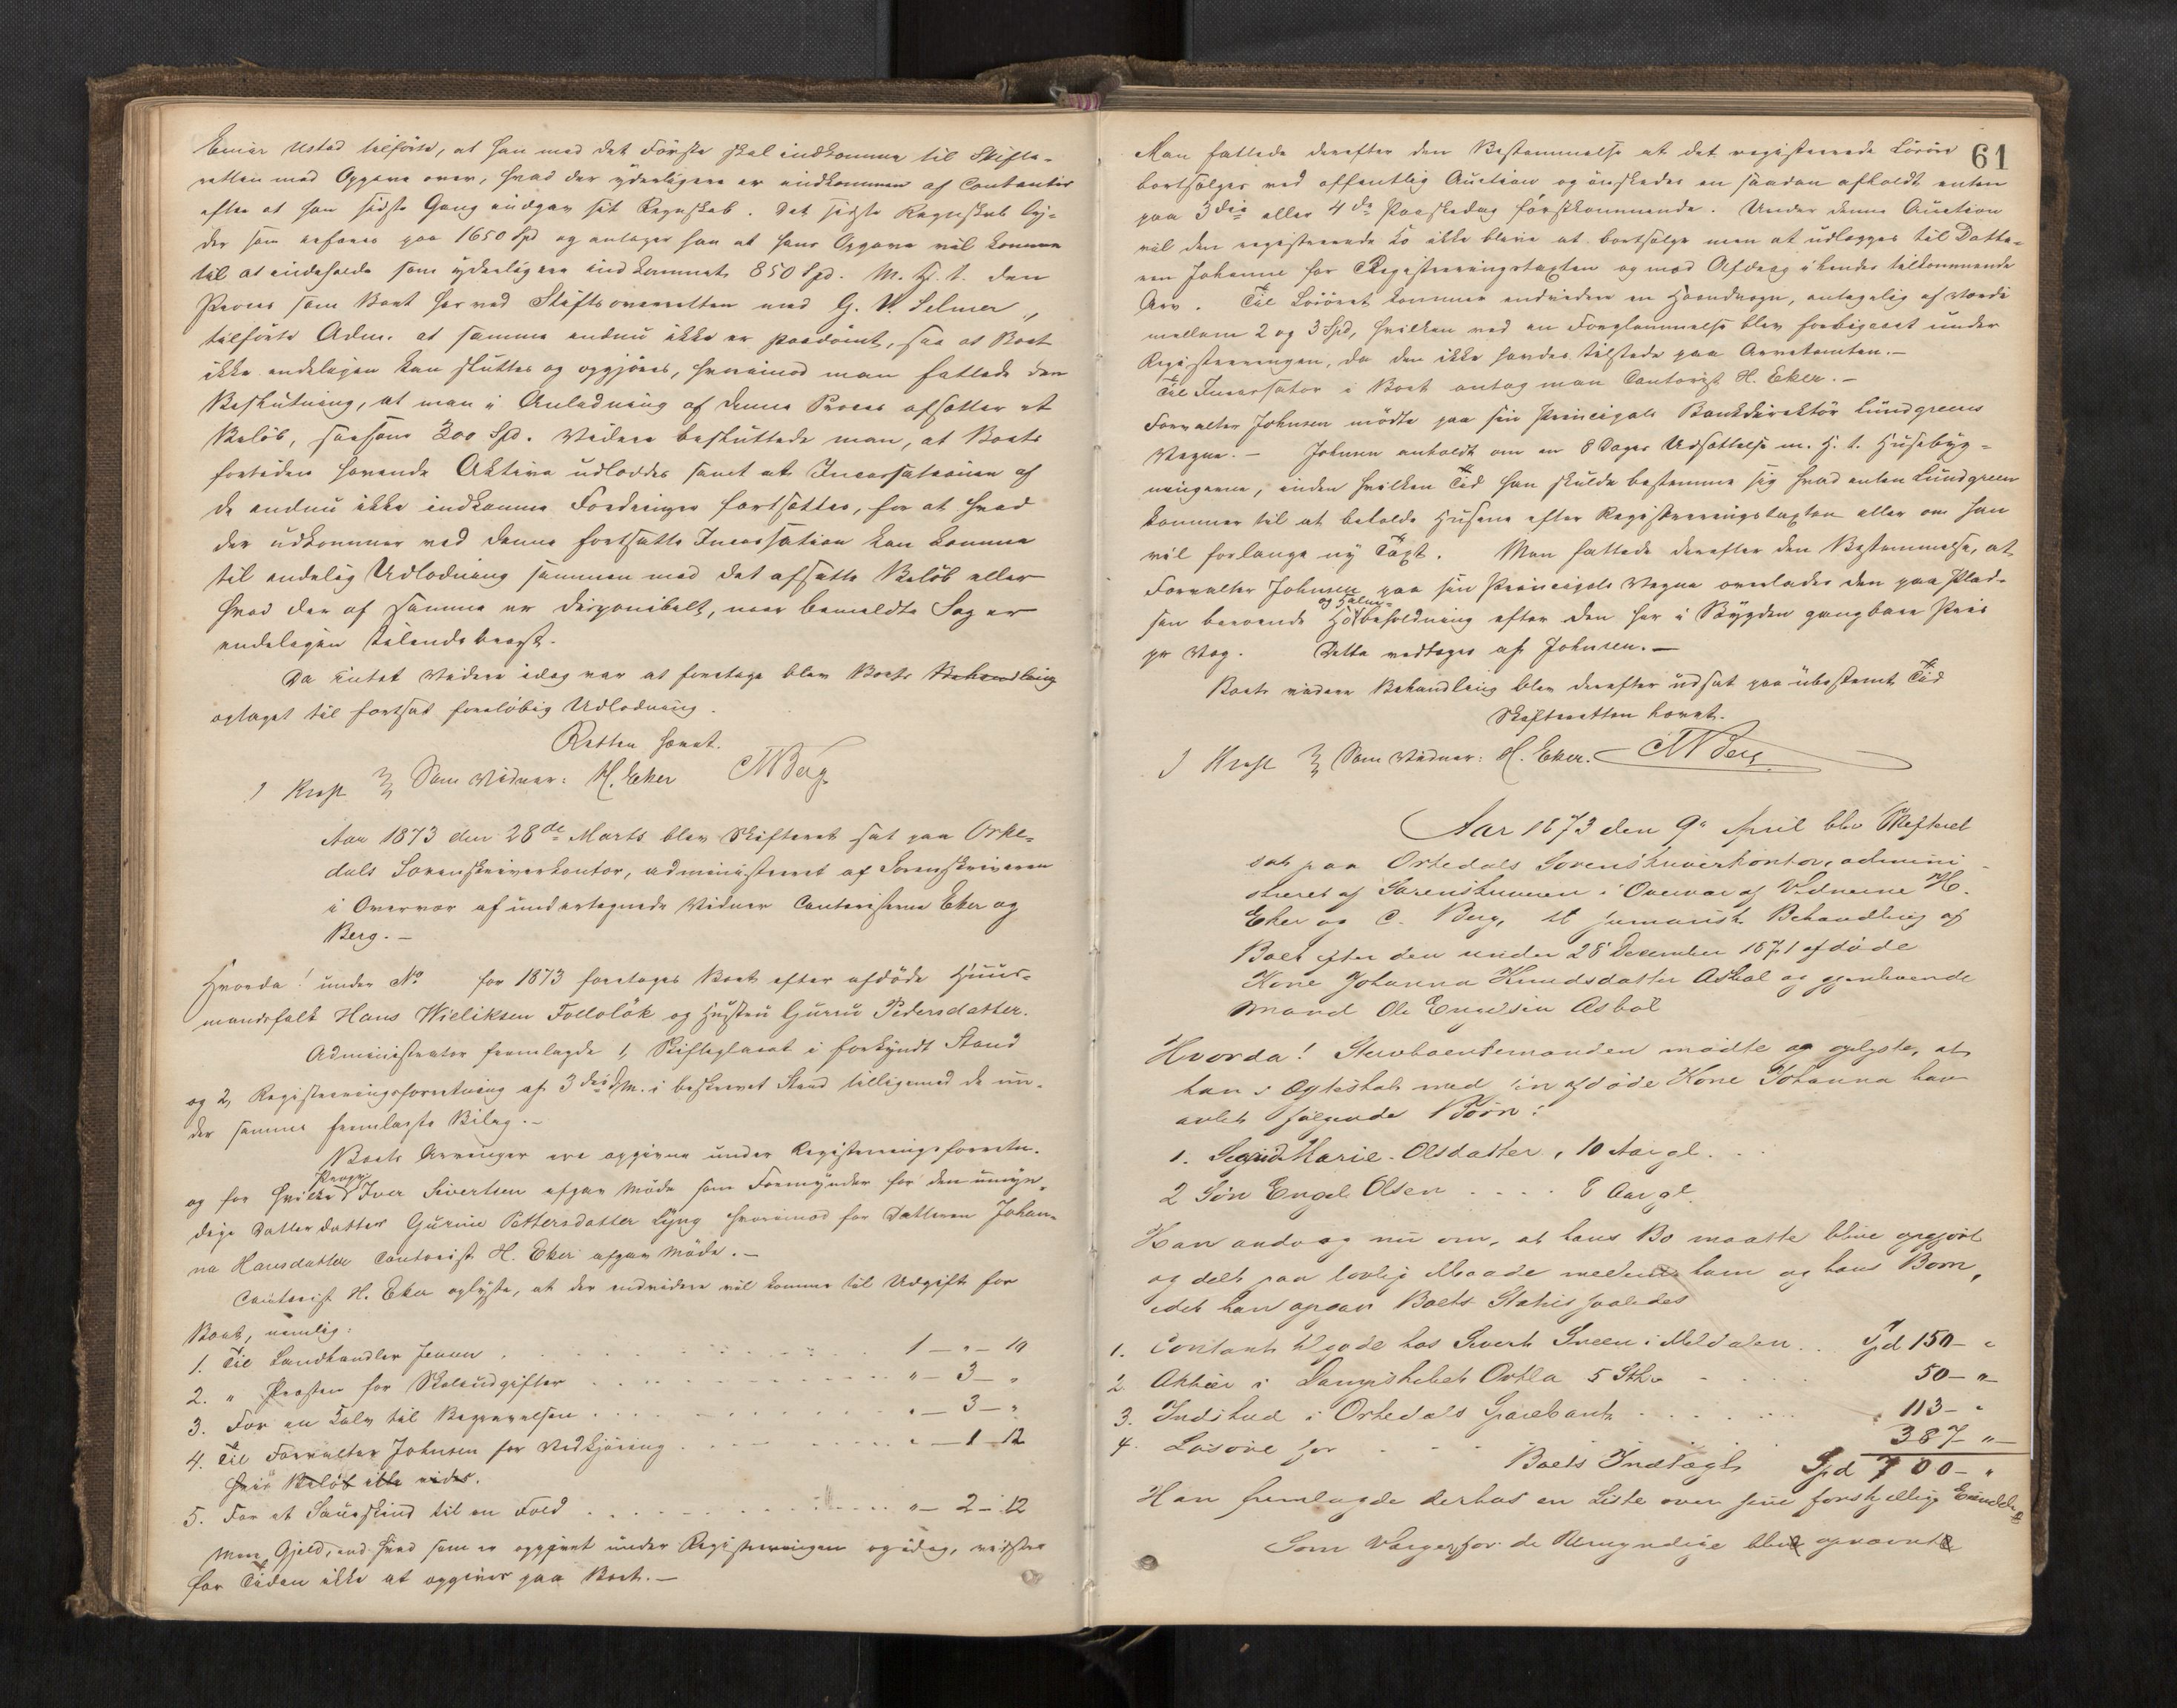 Einar Ustad tilförte, at han med det Förste skal indkomme til Skifte-
retten med Opgave over, hvad der yderligere er indkommen af Contanter
efter at han sidste Gang indgav sit Regnskab. Det sidste Regnskab lyder
som anføres paa 1650 Spd og antager han at hans Opgave vil komme
til at indeholde som yderligere indkommet 850 Spd. M. H. t. den
Proces som Boet har ved Stiftsoverretten med G. V. Selmer,
tilførte Adm. at samme endnu ikke er paadömt, saa at Boet
ikke endeligen kan sluttes og opgjöres, hvorimod man fattede den
Beslutning, at man i Anledning af denne Proces afsetter et
Belöb, saasom 300 Spd. Videre besluttede man, at Boets
fortiden havende Aktiva udloddes samt at Incassationen af
de endnu ikke indkomne Fordringer fortsættes, for at hvad
der udkommer ved denne fortsatte Incassation kan komme
til endelig Udlodning sammen med det afsatte Belöb eller
hvad der af samme er disponibelt, naar bemeldte Sag er
endeligen tilendebragt.
Da Intet videre idag var at foretage blev Boets Behandling
optaget til fortsat foreløbig Udlodning.
Retten hævet.
Krog Som Vidner: H. Eker CMBerg
Aar 1873 den 28de Marts blev Skifteret sat paa Orke-
dals Sorenskriverkontor, administreret af Sorenskriveren
i Overvær af undertegnede Vidner Contoristerne Eker og
Berg. -
Hvorda! under No for 1873 foretoges Boet efter afdöde Huus-
mandsfolk Hans Wieliksen Follolök og Hustru Guruu Pedersdatter.
Administrator fremlagde 1, Skifteplacat i forkyndt Stand
og 2, Registreringsforretning af 3die d. M. i beskrevet Stand tilligemed de un-
der samme fremlagte Bilag. -
Boets Arvinger ere opgivne under Registreringsforretn.
og for hvilke Iver Sivertsen afgav Möde som Formynder for den umyn-
dige Datterdatter Gurine Pettersdatter Lyng hvorimod for Datteren Johan-
na Hansdatter Contorist H. Eker afgav Möde. -
Contorist H. Eker oplyste, at der endvidere vil komme til Udgift for
Boet, nemlig:
1. Til Landhandler Jensen . . . 1 - " - 19
2. " Presten for Skoleudgifter . . . " - 3 - "
3. For en Kalv til Begravelsen . . . " - 3 - "
4. Til Forvalter Johnsen for Vedkjöring . . . " - 1 - 12
hvis Belöb ikke vides.
5. For et Saueskind til en Feld . . . " - 2 - 12
Mere Gjeld, end hvad som er opgivet under Registreringen og idag, vidstes
for Tiden ikke at opgives paa Boet. -
61
Man fattede derefter den Bestemmelse at det registrerede Lösöre
bortsælges ved offentlig Auction og önskedes en saadan afholdt enten
paa 3die eller 4de Paaskedag förstkommende. Under denne Auction
vil den registrerede Ko ikke blive at bortsælge men at udlægges til Datte-
ren Johanne for Registreringstaxten og mod Afdrag i hendes tilkommende
Arv. Til Lösöret kommer endvidere en Haandvogn, antagelig af Værdi
mellem 2 og 3 Spd, hvilken ved en Forglemmelse blev forbigaaet under
Registreringen, da den ikke havdes tilstede paa Arvetomten. -
Til Incassator i Boet antog man Contorist H. Eker. -
Forvalter Johnsen mödte paa sin Principals Bankdirektör Lundgreens
Vegne. - Johnsen anholdt om en 8 Dages Udsættelse m. H. t. Husebyg-
ningerne, inden hvilken Tid han skulde bestemme sig hvad enten Lundgreen
kommer til at beholde Husene efter Registreringstaxten eller om han
vil forlange ny Taxt. Man fattede derefter den Bestemmelse, at
Forvalter Johnsen paa sin Principals Vegne overlades den paa Plad-
og Halm-
sen beroende Höbeholdning efter den her i Bygden gangbare Priis
pr Vog. Dette vedtoges af Johnsen. -
Boets videre Behandling blev derefter udsat paa ubestemt Tid
Skifteretten hævet.
Krog Som Vidner: H. Eker. CMBerg
Aar 1873 den 9de April blev Skifteret
sat paa Orkedals Sorenskriverkontor, admini-
streret af Sorenskriveren i Overvær af Vidnerne H.
Eker og C. Berg, til sumarisk Behandling af
Boet efter den under 28 December 1871 afdöde
Kone Johanna Knudsdatter Asbøl og gjenlevende
Mand Ole Engelsen Asbøl
Hvorda! Stervboenkemanden mödte og oplyste, at
han i Egteskab med sin afdöde Kone Johanna har
avlet følgende Børn:
1. Sigrid Marie Olsdatter, 10 Aar gl. . .
2 Søn Engel Olsen . . . . 8 Aar gl.
Han androg nu om, at hans Bo maatte blive opgjort
og delt paa lovlig Maade mellem ham og hans Børn,
idet han opgav Boets Status saaledes
1. Contant tilgode hos Sivert Sneen i Meldalen . . Spd 150 - "
2. Aktier i Dampskibet Orkla 5 Stk. . . . 50 - "
3. Indskud i Orkedals Sparebank . . . . 113 - "
4. Løsøre for . . . . 387 - "
Boets Indtægt Spd 700 - "
Han fremlagde derhos en Liste over sine forskjellige Eiendele
Som Værger for de Umyndige blev opnævnt